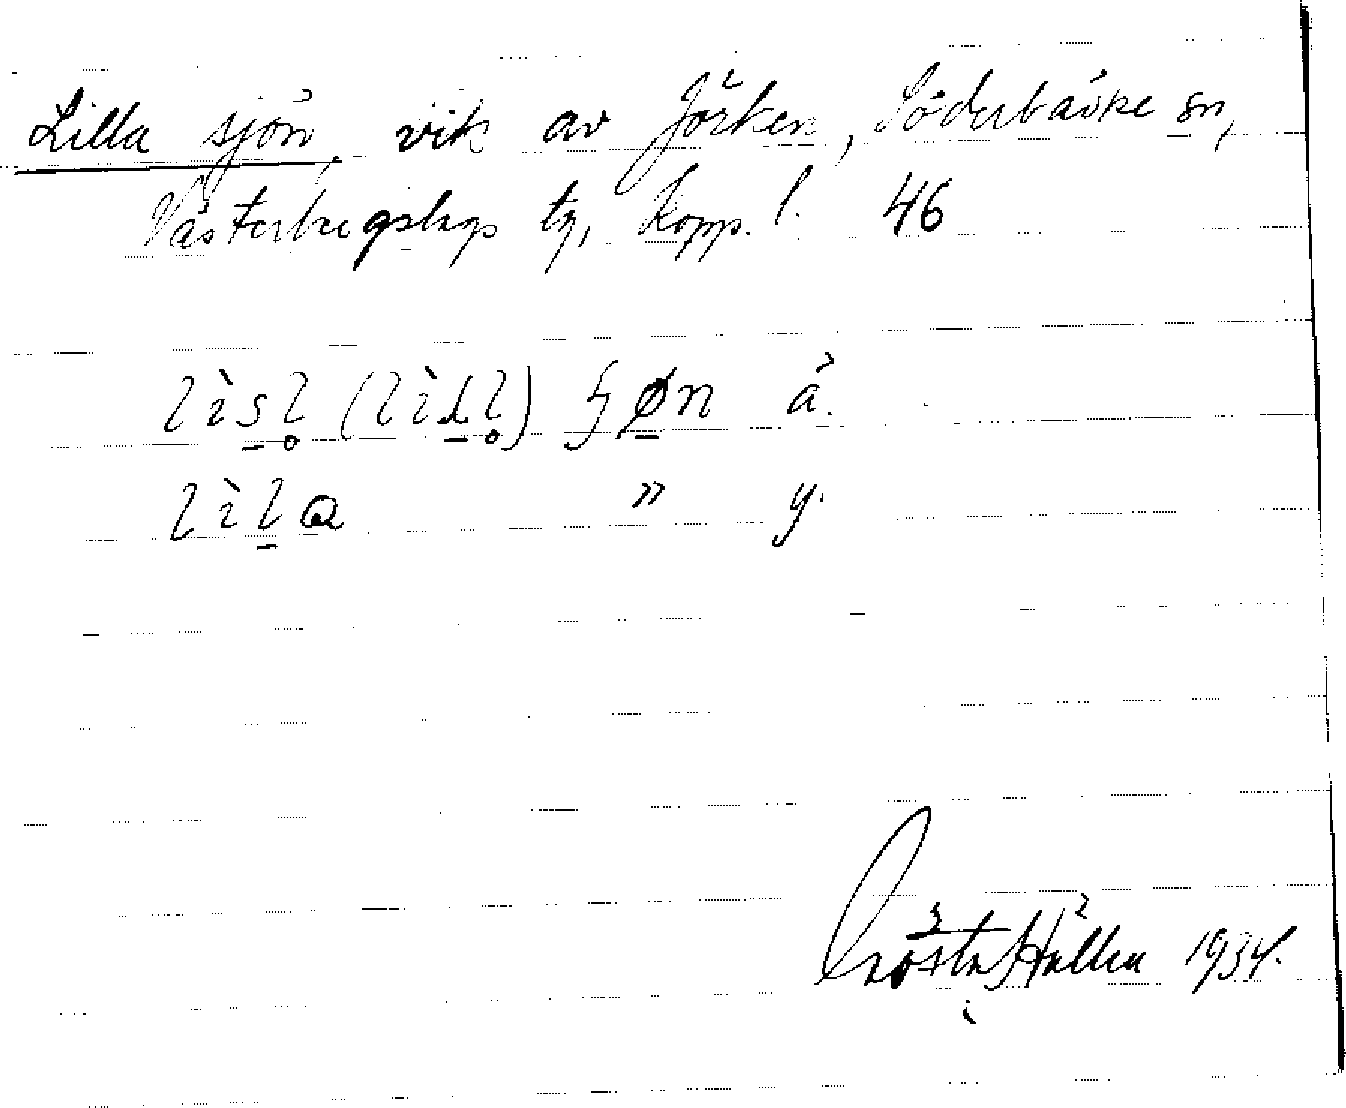 Lilla sjön, vik av Jörken, Söderbärke sn,
Västerbergslags tg, Kopp. l. 46
lìsl̥ (lìdl̥) ʃøn ä.
lìla " y.
Gösta Hallén 1934.